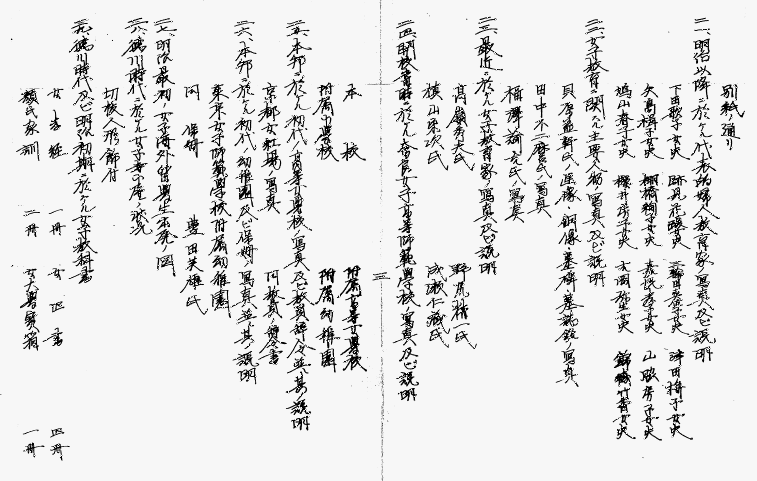 別紙ノ通リ
二一、明治以降ニ於ケル代表的婦人教育家ノ写真及ビ説明
下田歌子女史 跡見花蹊女史 三輪田眞佐子女史 津田梅子女史
矢島楫子女史 棚橋絢子女史 嘉悦孝子女史 山脇房子女史
鳩山春子女史 櫻井ちか女史 吉岡弥生女史 錦織竹香女史
二二、女子教育ニ関スル主要人物ノ写真及ビ説明
貝原益軒氏ノ座像・銅像・墓碑・墓誌銘ノ写真
田中不二麿氏ノ写真
福澤諭吉氏ノ写真
二三、最近ニ於ケル女子教育家ノ写真及ビ説明
高嶺秀夫氏 野尻精一氏
槇山栄次氏 成瀬仁蔵氏
二四、開校当時ニ於ケル奈良女子高等師範学校ノ写真及ビ説明
三
本校 附属高等女学校
附属小学校 附属幼稚園
二五、本邦ニ於ケル初代高等女学校ノ写真及ビ教員辞令並ニ其ノ説明
京都女紅場ノ写真 同教員ノ辞令書
二六、本邦ニ於ケル初代幼稚園及ビ保姆ノ写真並ニ其ノ説明
東京女子師範学校附属幼稚園
同 保姆 豊田芙雄氏
二七、明治最初ノ女子海外留学生出発ノ図
二八、徳川時代ニ於ケル女子寺小屋ノ状況
切抜人形飾付
二九、徳川時代及ビ明治初期ニ於ケル女子教科書
女孝経 一冊 女四書 四冊
顔氏家訓 二冊 女大學寶箱 一冊